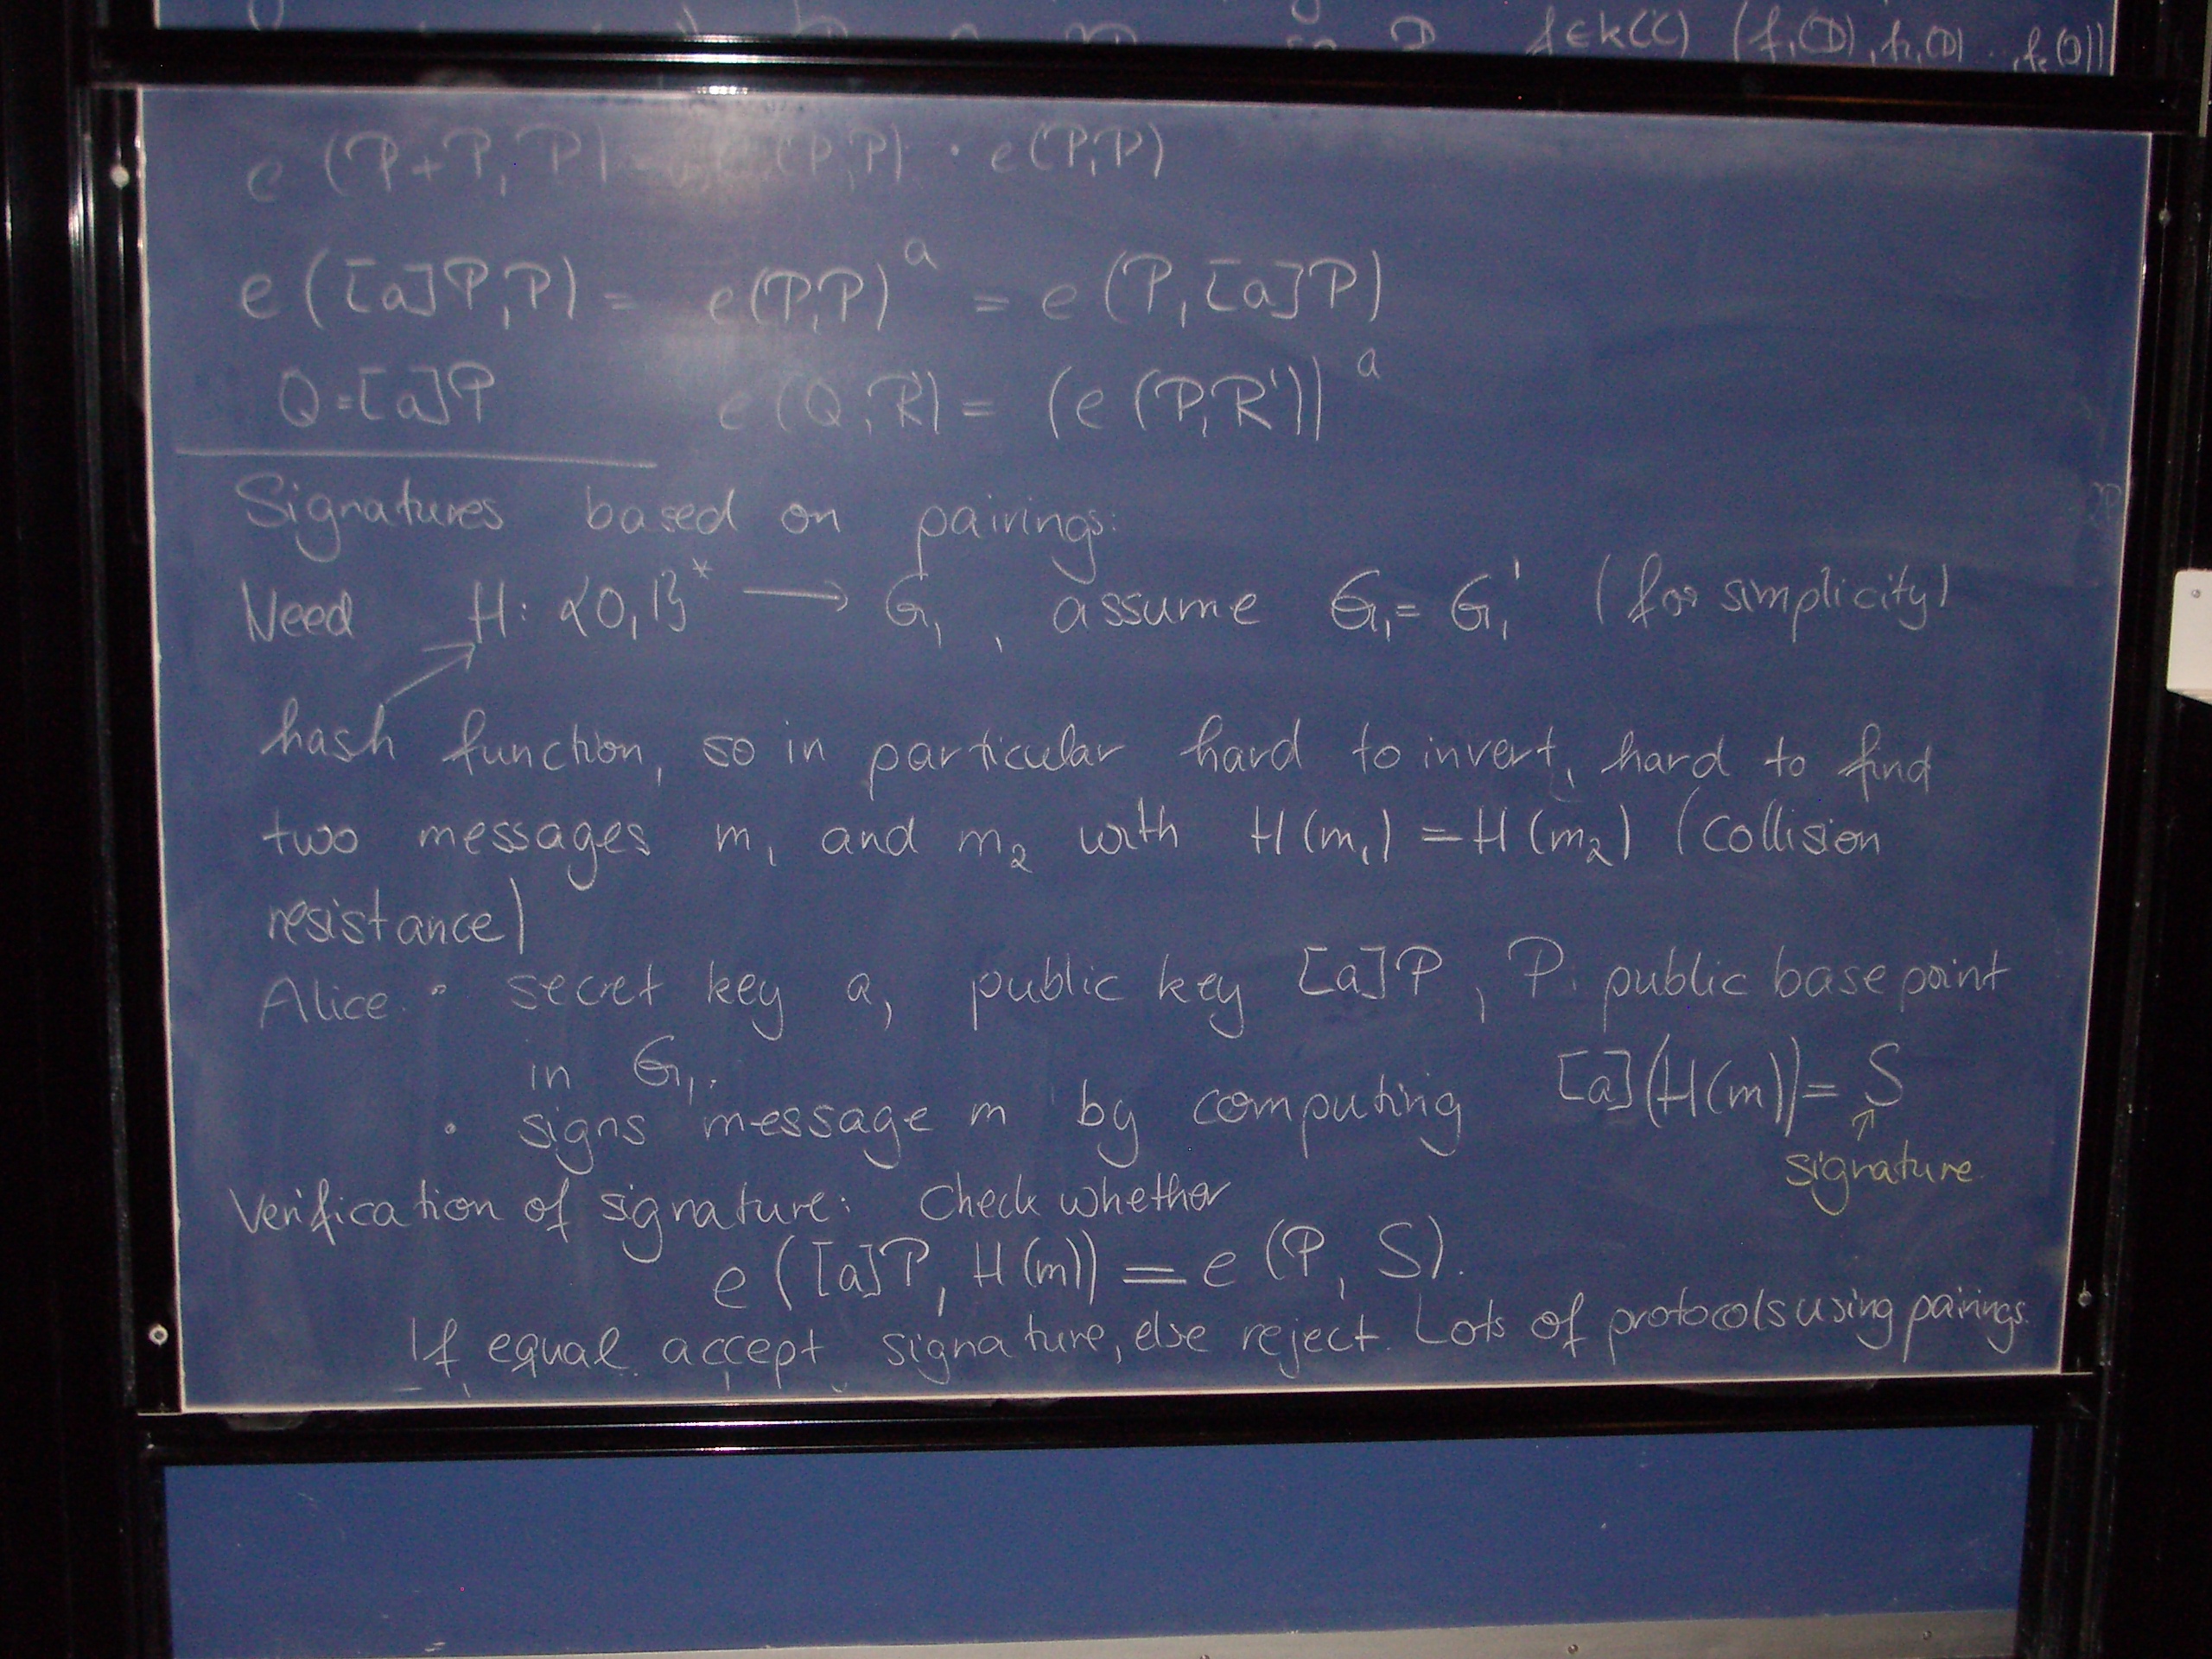 f ∈ k(C) (f₁(D), f₂(D) ..., (D))
e (P+P, P) (P,P) · e(P,P)
e ([a]P,P) = e(P,P)^a = e (P,[a]P)
Q=[a]P e(Q,R') = (e(P,R'))^a
Signatures based on pairings:
Need H: {0,1}* → G₁, assume G₁ = G₁' (for simplicity)
hash function, so in particular hard to invert, hard to find
two messages m₁ and m₂ with H(m₁) = H(m₂) (collision
resistance)
Alice: • secret key a, public key [a]P, P: public base point
in G₁.
• signs message m by computing [a](H(m)) = S
↑
signature
Verification of signature: Check whether
e([a]P, H(m)) = e(P, S).
If equal accept signature, else reject. Lots of protocols using pairings.